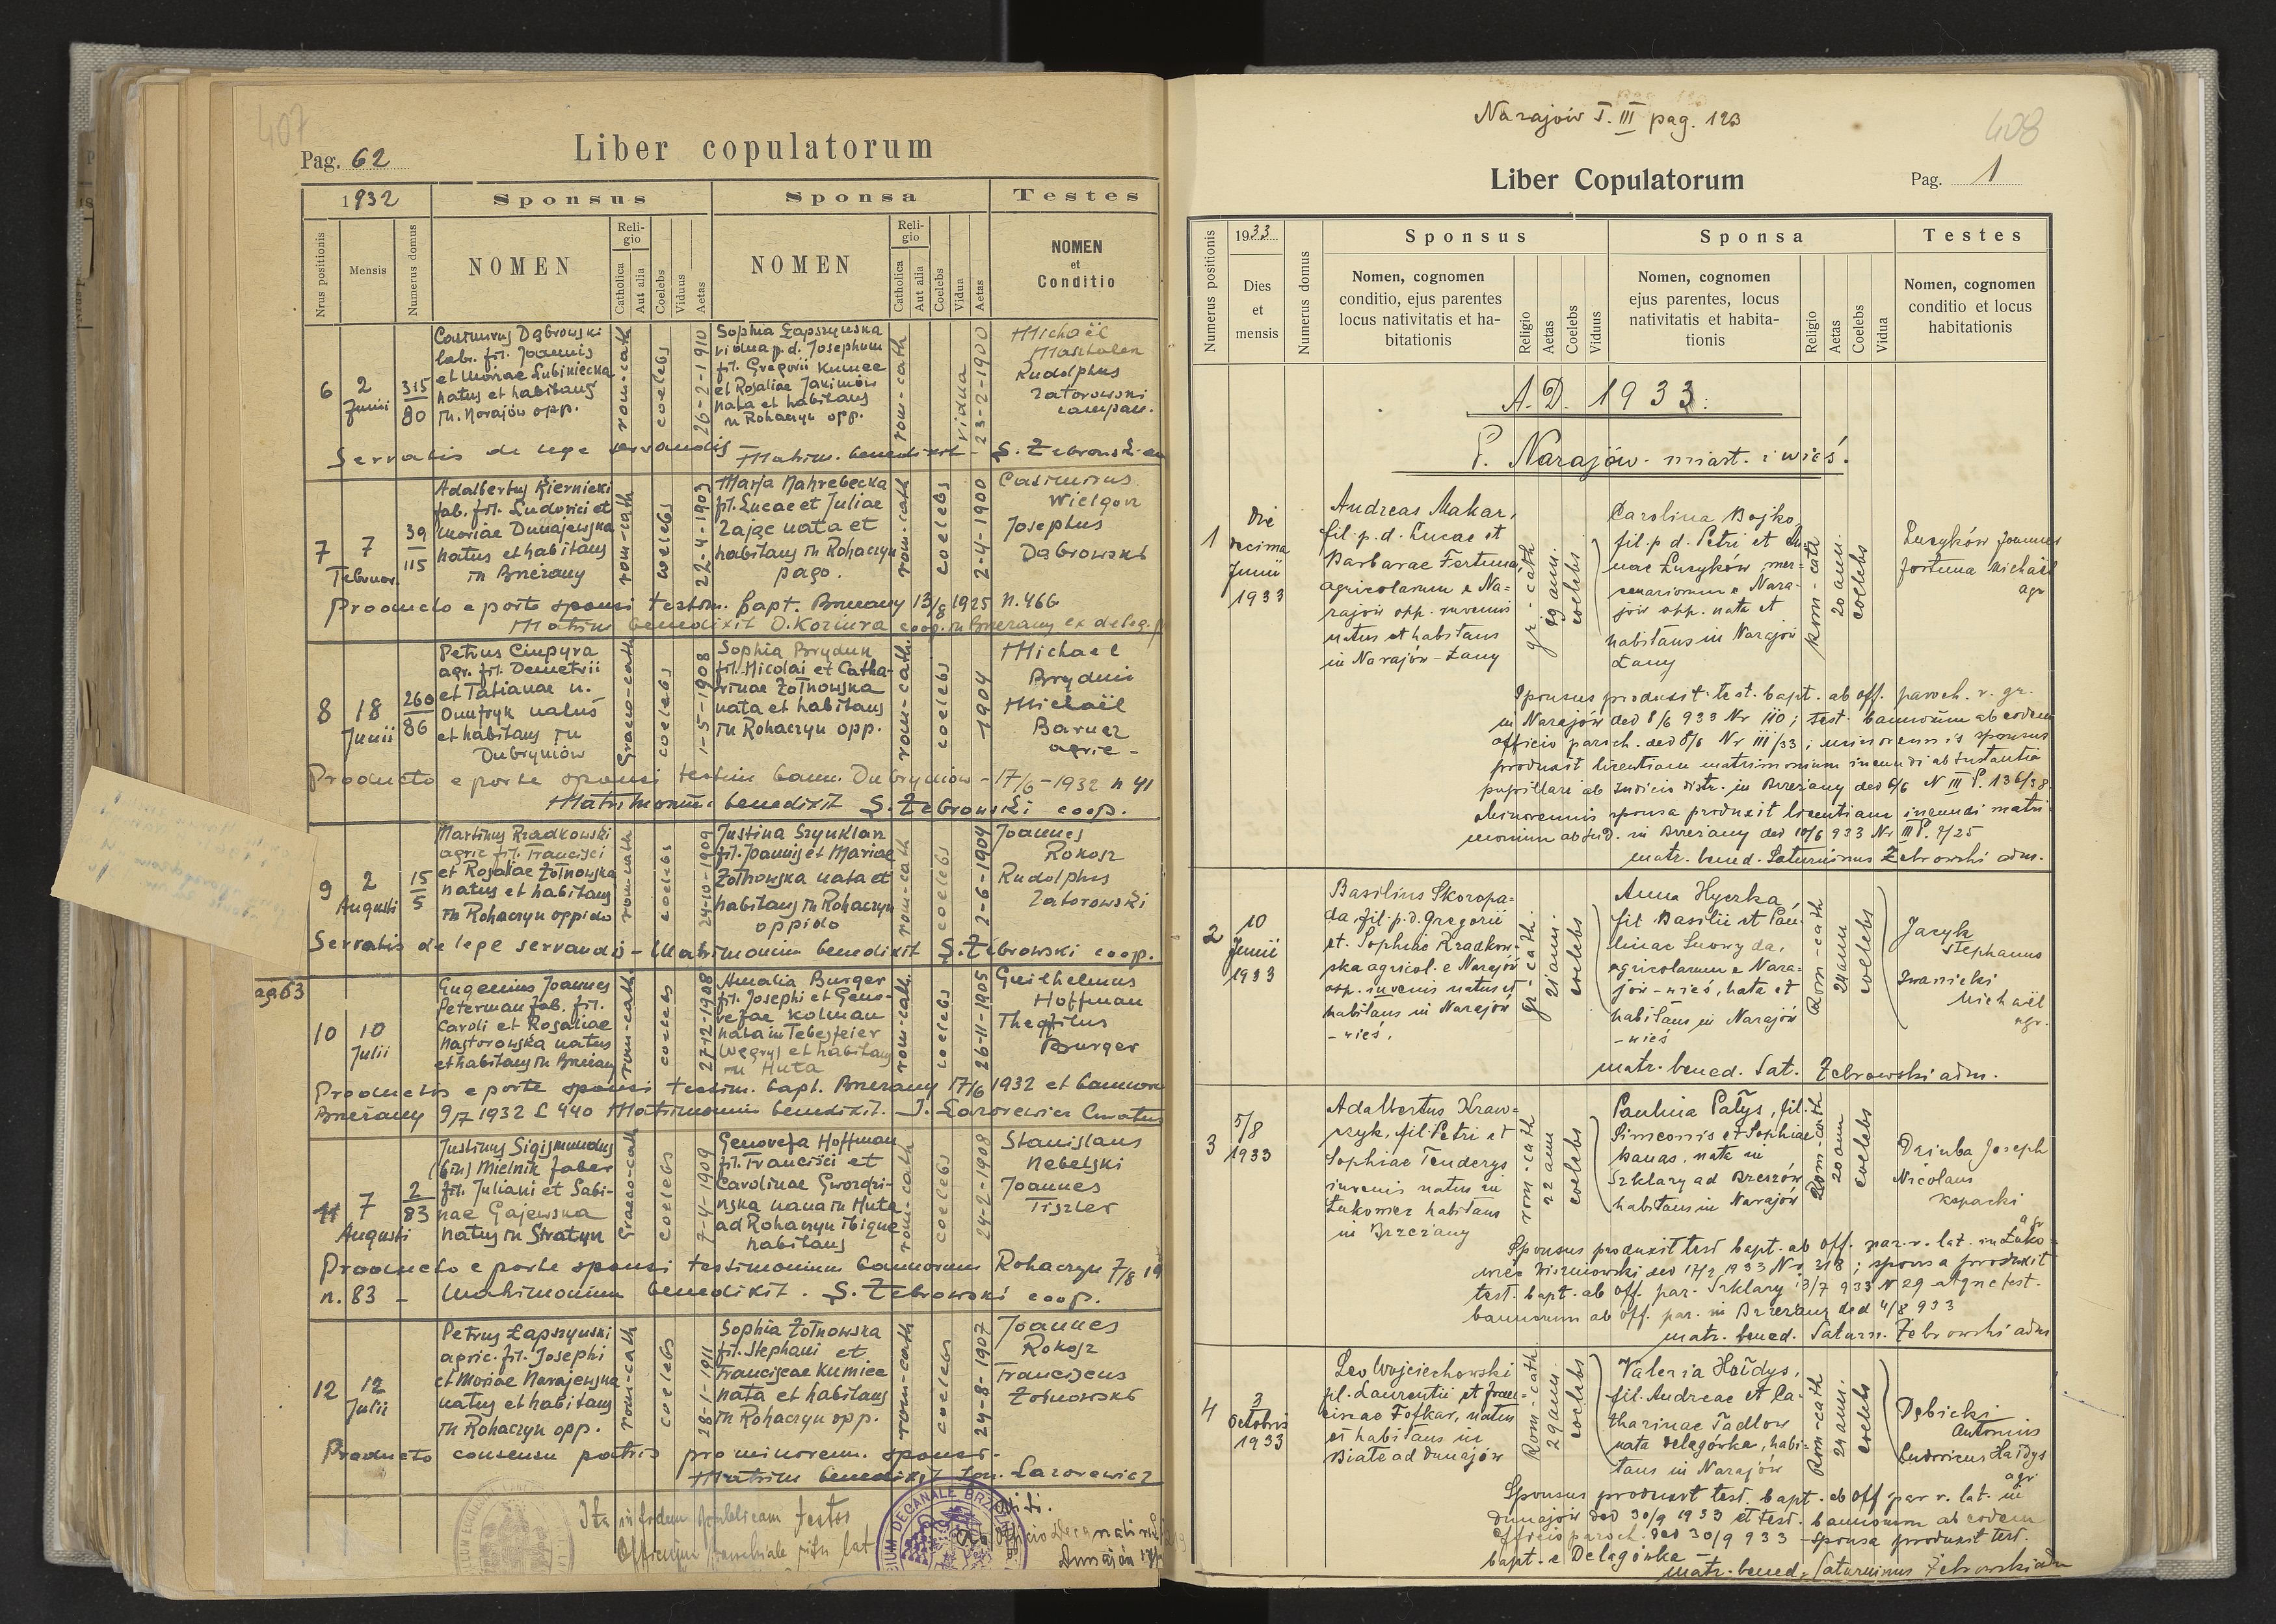 407
Pag. 62
Liber copulatorum
1932
Sponsus
Sponsa
Testes
Nrus positionis
Mensis
Numerus domus
NOMEN
Religio
Catholica
Aut alia
Coelebs
Viduus
Aetas
NOMEN
Religio
Catholica
Aut alia
Coelebs
Vidua
Aetas
NOMEN
et
Conditio
6
2
Junii
315
80
Casimirus Dąbrowski
labr. fil. Joannis
et Mariae Lubiniecka
natus et habitans
in Narajów opp.
rom-cath
coelebs
26-2-1910
Sophia Łapszynska
vidua p. d. Josephum
fil. Gregorii Kumiec
et Rosaliae Jakimów
nata et habitans
in Rohaczyn opp.
rom-cath
vidua
23-2-1900
Michaël
Marhalen
Rudolphus
Zatorowski
campan.
Servatis de lege servandis
Matrim. benedixit - S. Żebrowski
7
7
Februar.
39
115
Adalbertus Kiernicki
fab. fil. Ludovici et
Mariae Dunajewska
natus et habitans
in Brzeżany
rom-cath
coelebs
22-4-1903
Marja Nahrebecka
fil. Lucae et Juliae
Zając nata et
habitans in Rohaczyn
pago.
rom-cath
coelebs
2-4-1900
Casimirus
Wielgon
Josephus
Dąbrowski
Producto e parte sponsi testim. bapt. Brzeżany 13/8 1925 n. 466
Matrim benedixit O. Korżura coop. in Brzeżany ex deleg.
8
18
Junii
260
86
Petrus Ciupyra
agr. fil. Demetrii
et Tatianae n.
Onufryk natus
et habitans in
Dubryniów
Graeco-cath
coelebs
1-5-1908
Sophia Brydun
fil. Nicolai et Catha-
rinae Żołnowska
nata et habitans
in Rohaczyn opp.
rom-cath.
coelebs
1904
Michael
Brydun
Michaël
Barucz
agric -
Producto e parte sponsi testim bann. Dubryniów - 17/6 - 1932 n 41
Matrimonium benedixit S. Żebrowski coop.
9
2
Augusti
15
5
Martinus Rządkowski
agric fil. Francisci
et Rosaliae Żołnowska
natus et habitans
in Rohaczyn oppido
rom-cath
coelebs
24-10-1909
Justina Szynklar
fil. Joannis et Mariae
Żołnowska nata et
habitans in Rohaczyn
oppido
rom-cath
coelebs
2-6-1904
Joannes
Rokosz
Rudolphus
Zatorowski
Servatis de lege servandis - Matrimonium benedixit S. Żebrowski coop.
ag. 63
10
10
Julii
Eugenius Joannes
Peterman fab. fil.
Caroli et Rosaliae
Nastorowska natus
et habitans in Brzeżany
rom-cath
coelebs
27-12-1908
Amalia Burger
fil. Josephi et Geno-
vefae Kolman
nata in Tebesfeier
(Węgry) et habitans
in Huta
rom-cath.
coelebs
26-11-1905
Guilhelmus
Hoffman
Theofilus
Burger
Productis e parte sponsi testim. bapt. Brzeżany 17/6 1932 et bannorum
Brzeżany 9/7 1932 L 440 Matrimonium benedixit. J. Łazorewicz Curatus
11
7
Augusti
2
83
Justinus Sigismundus
(bin) Mielnik faber
fil. Juliani et Sabi-
nae Gajewska
natus in Stratyn
Graeco-cath
coelebs
7-4-1909
Genovefa Hoffman
fil. Francisci et
Carolinae Gwozdzi-
nska nata in Huta
ad Rohaczyn ibique
habitans
rom-cath
coelebs
24-2-1908
Stanislaus
Nebelski
Joannes
Tiszler
Producto e parte sponsi testimonium bannorum Rohaczyn 7/8 19
n. 83 - Matrimonium benedixit. S. Żebrowski coop.
12
12
Julii
Petrus Łapszynski
agric. fil. Josephi
et Mariae Narajewska
natus et habitans
in Rohaczyn opp.
rom-cath
coelebs
28-1-1911
Sophia Żołnowska
fil. Stephani et
Franciscae Kumiec
nata et habitans
in Rohaczyn opp.
rom-cath
coelebs
24-8-1907
Joannes
Rokosz
Franciscus
Żołnowski
Producto consensu patris pro minorenn. sponsi -
Matrim benedixit Jon. Łazorewicz
Ita in fidem publicam testor
Officium parochiale ritu lat
Narajów T. III pag. 123
408
Liber Copulatorum
Pag. 1
Numerus positionis
1933
Dies
et
mensis
Numerus domus
Sponsus
Nomen, cognomen
conditio, ejus parentes
locus nativitatis et ha-
bitationis
Religio
Aetas
Coelebs
Viduus
Sponsa
Nomen, cognomen
ejus parentes, locus
nativitatis et habita-
tionis
Religio
Aetas
Coelebs
Vidua
Testes
Nomen, cognomen
conditio et locus
habitationis
A. D. 1933.
P. Narajów - miast. i wieś.
1
die
decima
Junii
1933
Andreas Makar,
fil. p. d. Lucae et
Barbarae Fertuna,
agricolarum e Na-
rajów opp. iuvenis
natus et habitans
in Narajów - Łany
gr - cath
29 ann.
coelebs
Carolina Bojko,
fil. p d. Petri et An-
nae Łuzyków, mer-
cenariorum e Nara-
jów opp. nata et
habitans in Narajów
Łany
Rom - cath
20 ann.
coelebs
Łuzyków Joannes
Fortuna Michaël
agr
Sponsus produxit test. bapt. ab off. paroch. r. gr.
in Narajów ded 8/6 933 Nr 110; test. bannorum ab eodem
officio paroch. ded 8/6 Nr 111/33; minorennis sponsus
produxit licentiam matrimonium ineundi ab instantia
pupillari ab Iudicio distr. in Brzeżany ded 6/6 N III P. 136/38.
Minorennis sponsa produxit licentiam ineundi matri-
monium ab Iud. in Brzeżany ded 10/6 933 Nr III P. 4/25
matr. bened. Saturninus Żebrowski adm.
2
10
Junii
1933
Basilius Skoropa-
da, fil. p. d. Gregorii
et. Sophiae Rzadkow-
ska agricol. e Narajów
opp. iuvenis natus et
habitans in Narajów
- wieś.
gr - cath.
21 ann.
coelebs
Anna Hyrka,
fil Basilii et Pau-
linae Snowyda,
agricolarum e Nara-
jów - wieś, nata et
habitans in Narajów
- wieś
Rom - cath
24 ann
coelebs
Jaryk
Stephanus
Iwanicki
Michaël
agr.
matr. bened. Sat. Żebrowski adm.
3
5/8
1933
Adalbertus Kraw-
czyk, fil. Petri et
Sophiae Tenderys
iuvenis natus in
Łukowiec habitans
in Brzeżany
rom - cath
22 ann
coelebs
Paulina Patys, fil.
Simeonis et Sophiae
Banas, nata in
Szklary ad Brzozów
habitans in Narajów
Rom - cath
20 ann
coelebs
Dziuba Joseph
Nicolaus
Kopacki
agr
Sponsus produxit test bapt. ab off. par. r. lat. in Łuko-
wiec Wiszniowski ded 17/2 1933 Nr 318; sponsa produxit
test. bapt. ab off. par. Szklary 13/7 933 N 29 atque test.
bannorum ab off. par. in Brzeżany ded 4/8 933
matr. bened. Saturn. Żebrowski adm
4
2
Octobris
1933
Leo Wojciechowski
fil. Laurentii et Fran-
ciscae Fofkar, natus
et habitans in
Białe ad Dunajów
Rom - cath.
29 ann.
coelebs
Valeria Hałdys,
fil. Andreae et Ca-
tharinae Tadlow
nata Delagówka, habi-
tans in Narajów
Rom - cath
24 ann.
coelebs
Dębicki
Antonius
Ludovicus Hałdys
agr
Sponsus produxit test. bapt. ab off par r. lat. in
Dunajów ded 30/9 1933 et test. bannorum ab eodem
officio paroch. ded 30/9 933 - sponsa produxit test.
bapt. e Delagówka -
matr. bened. Saturninus Żebrowski adm